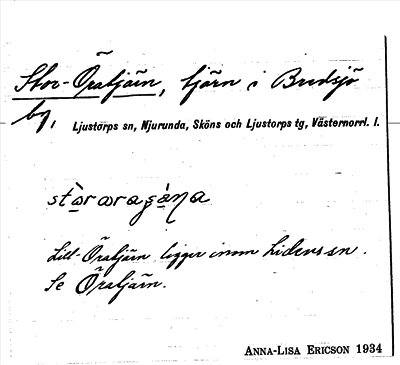 Stor-Öratjärn, tjärn i Bredsjö
by,
Ljustorps sn, Njurunda, Sköns och Ljustorps tg, Västernorrl. l.
Lill-Öratjärn ligger inom Lidens sn.
Se Öratjärn.
ANNA-LISA ERICSON 1934